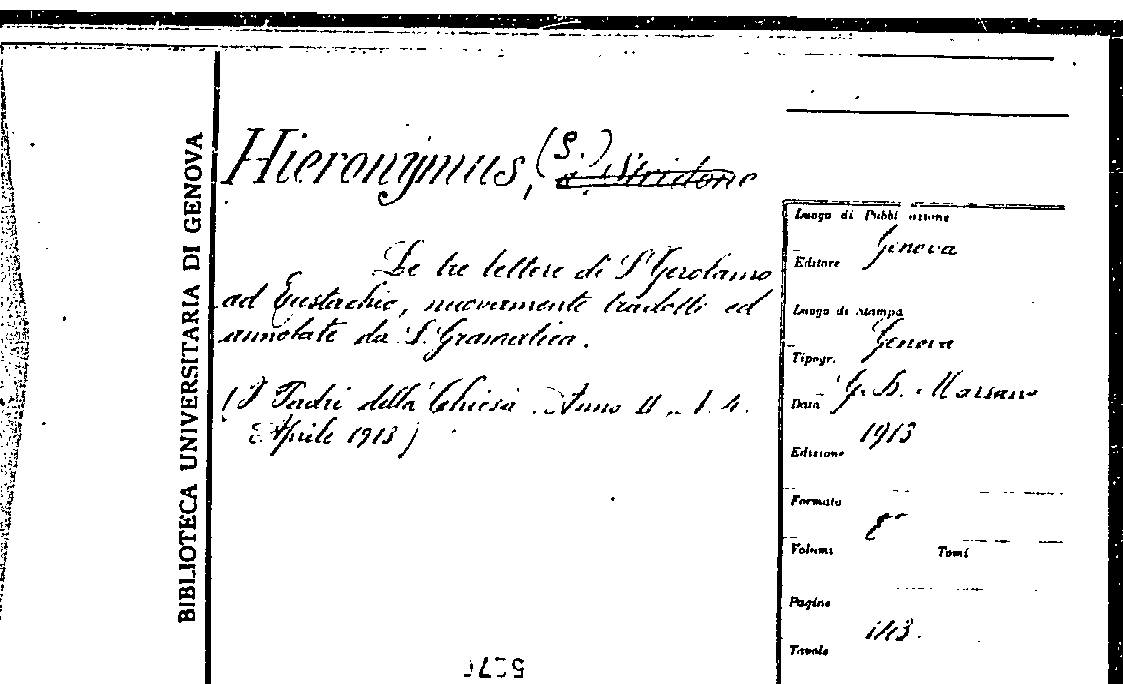 BIBLIOTECA UNIVERSITARIA DI GENOVA
Hieronymus, (S.) a Stridone
Le tre lettere di S. Gerolamo
ad Eustochio, nuovamente tradotte ed
annotate da L. Gramatica.
(I Padri della Chiesa. Anno II. n. 4.
Aprile 1913)
Luogo di Pubblicazione
Genova
Editore
Luogo di stampa
Genova
Tipogr.
G. B. Marsano
Data
1913
Edizione
Formato
8°
Volumi Tomi
Pagine
Tavole